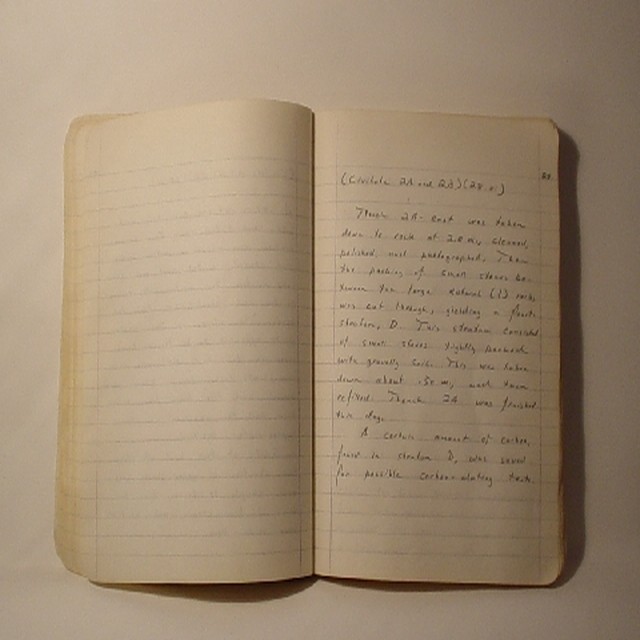 (Civitola 2A and 2B) (28.vi)
Trench 2A-east was taken
down to rock at 2.0 m, cleaned,
polished, and photographed. Then
the packing of small stones be-
tween the large natural (?) rocks
was cut through, yielding a fourth
stratum, D. This stratum consisted
of small stones tightly packed
with gravelly soil. This was taken
down about .50 m, and then
refilled. Trench 2A was finished
this day.
A certain amount of carbon,
found in stratum D, was saved
for possible carbon-dating tests.